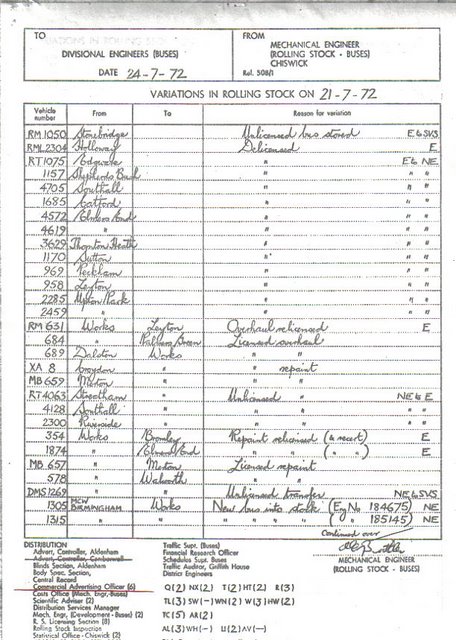 TO
FROM
DIVISIONAL ENGINEERS (BUSES)
MECHANICAL ENGINEER
(ROLLING STOCK - BUSES)
CHISWICK
DATE 24-7-72
Ref. 508/1
VARIATIONS IN ROLLING STOCK ON 21-7-72
Vehicle number From To Reason for variation
RM 1050 Stonebridge Unlicensed bus stored E to SVS
RML 2304 Holloway Delicensed E
RT 1075 Edgware " E to NE
1157 Shepherds Bush " " "
4705 Southall " " "
1685 Catford " " "
4572 Elmers End " " "
4619 " " " "
3629 Thornton Heath " " "
1170 Sutton " " "
969 Peckham " " "
958 Leyton " " "
2285 Upton Park " " "
2459 " " " "
RM 631 Works Leyton Overhaul relicensed E
684 " Palmers Green Licensed overhaul
689 Dalston Works " "
XA 8 Croydon " " repaint
MB 659 Merton " " "
RT 4063 Streatham " Unlicensed " NE to E
4128 Southall " " " " "
2300 Riverside " " " " "
354 Works Bromley Repaint relicensed (& recert) E
1874 " Elmers End " " ( " " ) E
MB 657 " Merton Licensed repaint
578 " Walworth " "
DMS 1269 " " Unlicensed transfer NE to SVS
1305 MCW BIRMINGHAM Works New bus into stock (Eng No 184675) NE
1315 " " " " " " ( " " 185145) NE
Continued over
MECHANICAL ENGINEER
(ROLLING STOCK - BUSES)
DISTRIBUTION
Advert. Controller, Aldenham
Advert. Controller, Camberwell
Blinds Section, Aldenham
Body Spec. Section,
Central Record
Commercial Advertising Officer (6)
Costs Office (Mech. Engr. Buses)
Scientific Adviser (2)
Distribution Services Manager
Mech. Engr. (Development - Buses) (2)
R. S. Licensing Section (8)
Rolling Stock Inspection
Statistical Office - Chiswick (2)
Traffic Supt. (Buses)
Financial Research Officer
Schedules Supt. Buses
Traffic Auditor, Griffith House
District Engineers
Q(2) NX(2) T(2) HT(2) R(3)
TL(3) SW(-) WN(2) W(3) HW(2)
TC(5) AR(2)
AL(3) WH(-) U(2) AV(-)